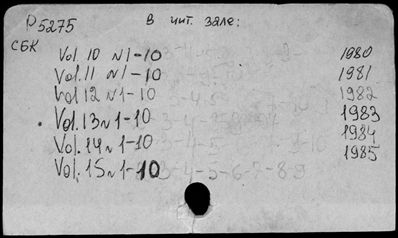 P5275 В чит. зале:
СБК
Vol. 10 N1-10 1980
Vol. 11 N1-10 1981
Vol 12 N1-10 1982
Vol. 13 N1-10 1983
Vol. 14 N1-10 1984
Vol. 15 N1-10 1985